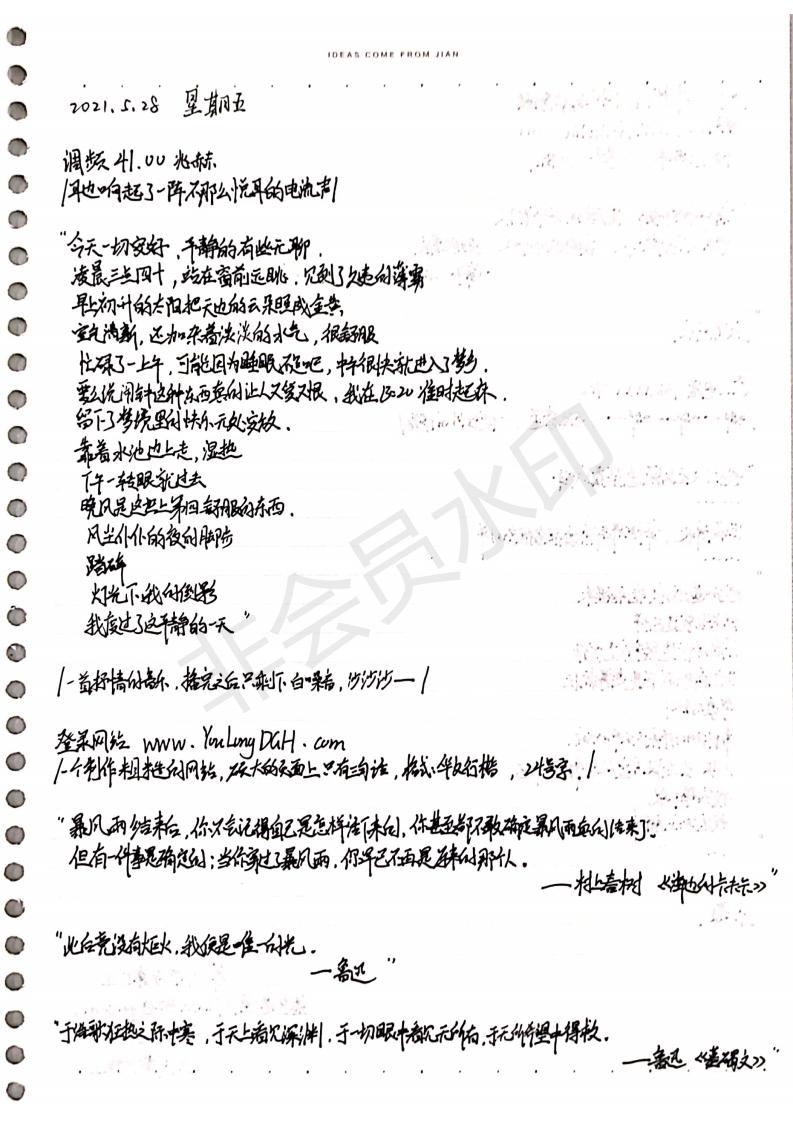 IDEAS COME FROM JIAN
2021.5.28 星期五
调频 41.00 兆赫
|耳边响起了一阵不那么悦耳的电流声|
“今天一切安好，平静的有些无聊．
凌晨三点四十，站在窗前远眺．见到了久违的薄雾
早上初升的太阳把天边的云朵照成金黄
空气清新，还加杂着淡淡的水气，很舒服
忙碌了一上午，可能因为睡眠不足吧，中午很快就进入了梦乡．
要么说闹钟这种东西真的让人又爱又恨，我在13:20准时起床．
留下了梦境里的快乐无处安放．
靠着水池边上走，湿热
下午一转眼就过去
晚风是这世上第四舒服的东西．
风尘仆仆的夜的脚步
踏碎
灯光下我的倒影
我度过了这平静的一天”
|一首抒情的音乐，播完之后只剩下白噪音，沙沙沙——|
登录网站 www.YouLongDGH.com
|一个制作粗糙的网站，硕大的页面上只有三句话，格式：华文行楷，24号字．|
“暴风雨结束后，你不会记得自己是怎样活下来的，你甚至都不敢确定暴风雨真的结束了．
但有一件事是确定的：当你穿过了暴风雨，你早已不再是原来的那个人．
——村上春树《海边的卡夫卡》”
“此后竟没有炬火，我便是唯一的光．
—鲁迅”
“于浩歌狂热之际中寒，于天上看见深渊，于一切眼中看见无所有，于无所希望中得救．
——鲁迅《墓碣文》”
非会员水印